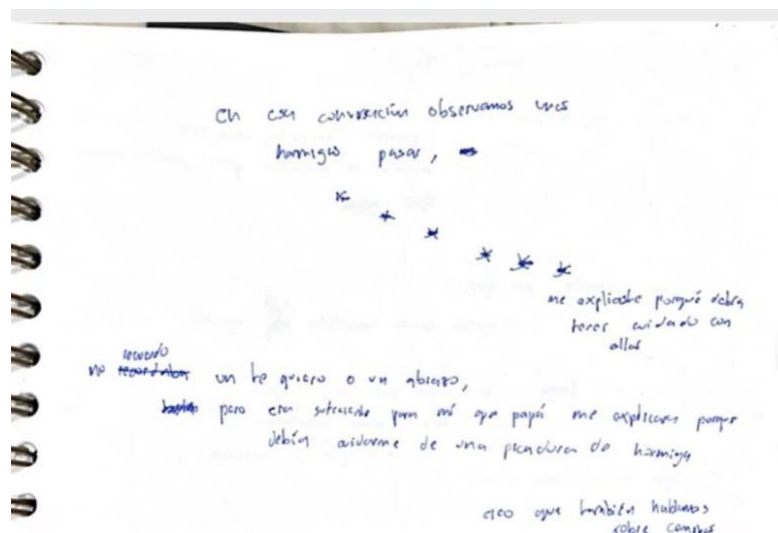 en esa conversación observamos unas
hormigas pasar,
me explicaste porqué debía
tener cuidado con
ellas
recuerdo
no recordaba un te quiero o un abrazo,
pero era suficiente para mí que papá me explicara porque
debía cuidarme de una picadura de hormiga
creo que también hablamos
sobre